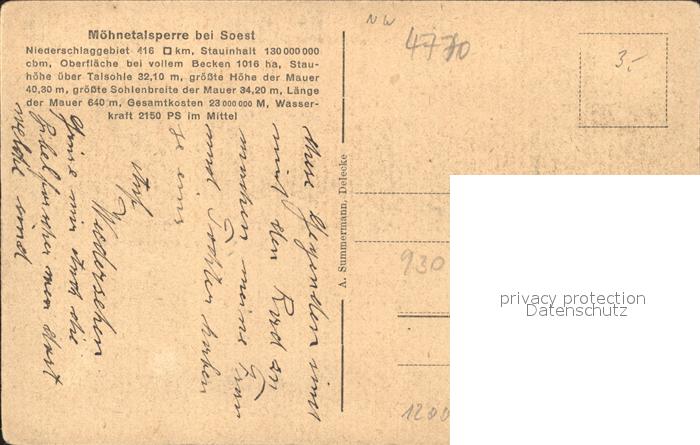 Möhnetalsperre bei Soest
Niederschlaggebiet 416 □ km, Stauinhalt 130 000 000
cbm, Oberfläche bei vollem Becken 1016 ha, Stau-
höhe über Talsohle 32,10 m, größte Höhe der Mauer
40,30 m, größte Sohlenbreite der Mauer 34,20 m, Länge
der Mauer 640 m, Gesamtkosten 23 000 000 M, Wasser-
kraft 2150 PS im Mittel
NW
4770
3,-
A. Summermann, Delecke
930
1200
privacy protection
Datenschutz
mit den Rad zu
machen meine Frau
und Töchter haben
je eins
Auf
Wiedersehen
welche sind